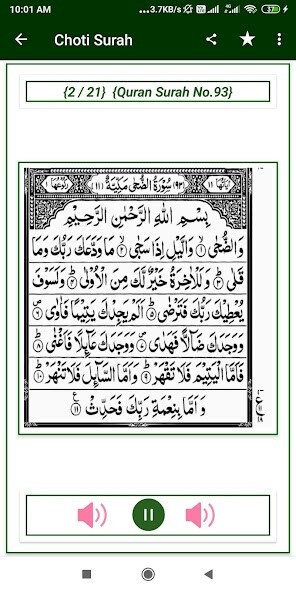 10:01 AM
...3.7KB/s
37
Choti Surah
{2 / 21} {Quran Surah No.93}
اٰيَاتُهَا ١١ (٩٣) سُوْرَةُ الضُّحٰى مَكِّيَّةٌ (١١) رُكُوْعُهَا
بِسْمِ اللّٰهِ الرَّحْمٰنِ الرَّحِيْمِ
وَالضُّحٰى ۙ ١ وَالَّيْلِ اِذَا سَجٰى ۙ ٢ مَا وَدَّعَكَ رَبُّكَ وَمَا
قَلٰى ؕ ٣ وَلَلْاٰخِرَةُ خَيْرٌ لَّكَ مِنَ الْاُوْلٰى ؕ ٤ وَلَسَوْفَ
يُعْطِيْكَ رَبُّكَ فَتَرْضٰى ؕ ٥ اَلَمْ يَجِدْكَ يَتِيْمًا فَاٰوٰى ۪ ٦
وَوَجَدَكَ ضَآلًّا فَهَدٰى ۪ ٧ وَوَجَدَكَ عَآئِلًا فَاَغْنٰى ؕ ٨
فَاَمَّا الْيَتِيْمَ فَلَا تَقْهَرْ ؕ ٩ وَاَمَّا السَّآئِلَ فَلَا تَنْهَرْ ؕ ١٠
وَاَمَّا بِنِعْمَةِ رَبِّكَ فَحَدِّثْ ١١ ع